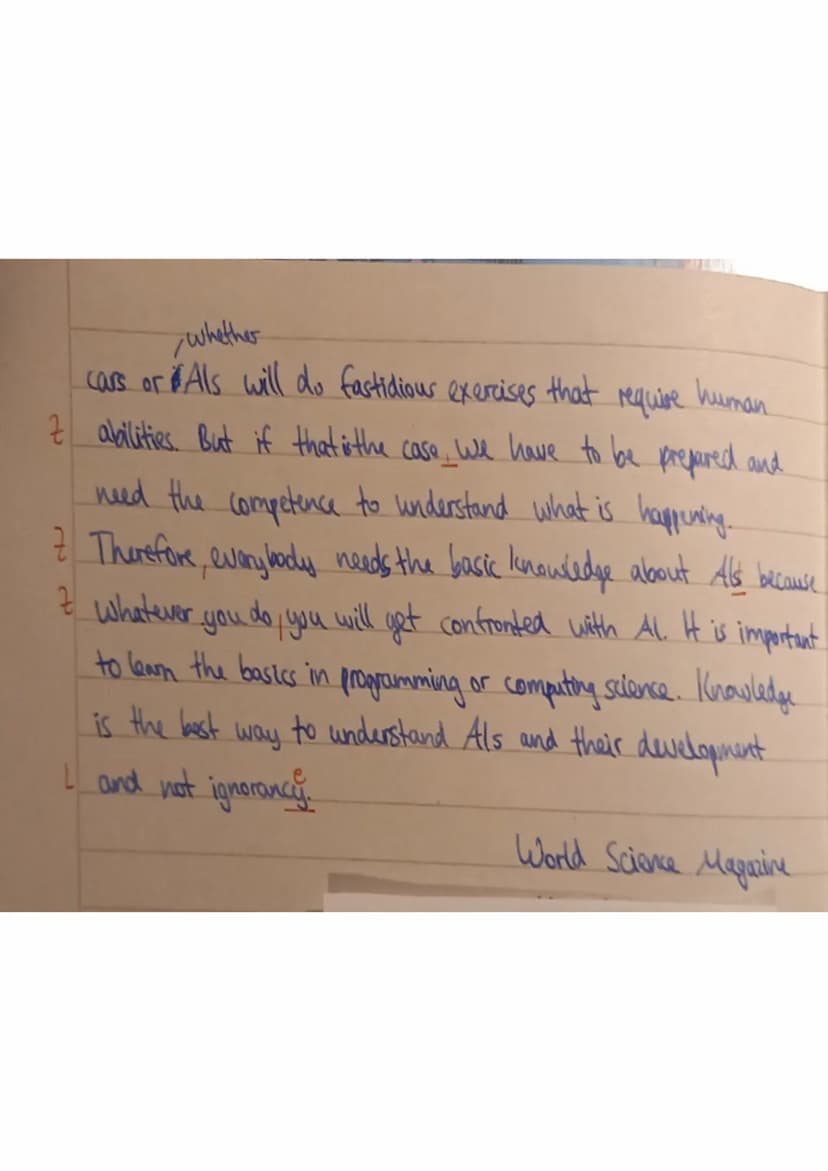 , whether
cars or AIs will do fastidious exercises that require human
Z abilities. But if that is the case, we have to be prepared and
need the competence to understand what is happening.
Z Therefore, everybody needs the basic knowledge about AIs because
Z whatever you do, you will get confronted with AI. It is important
to learn the basics in programming or computing science. Knowledge
is the best way to understand AIs and their development
e
L and not ignorancy.
World Science Magazine